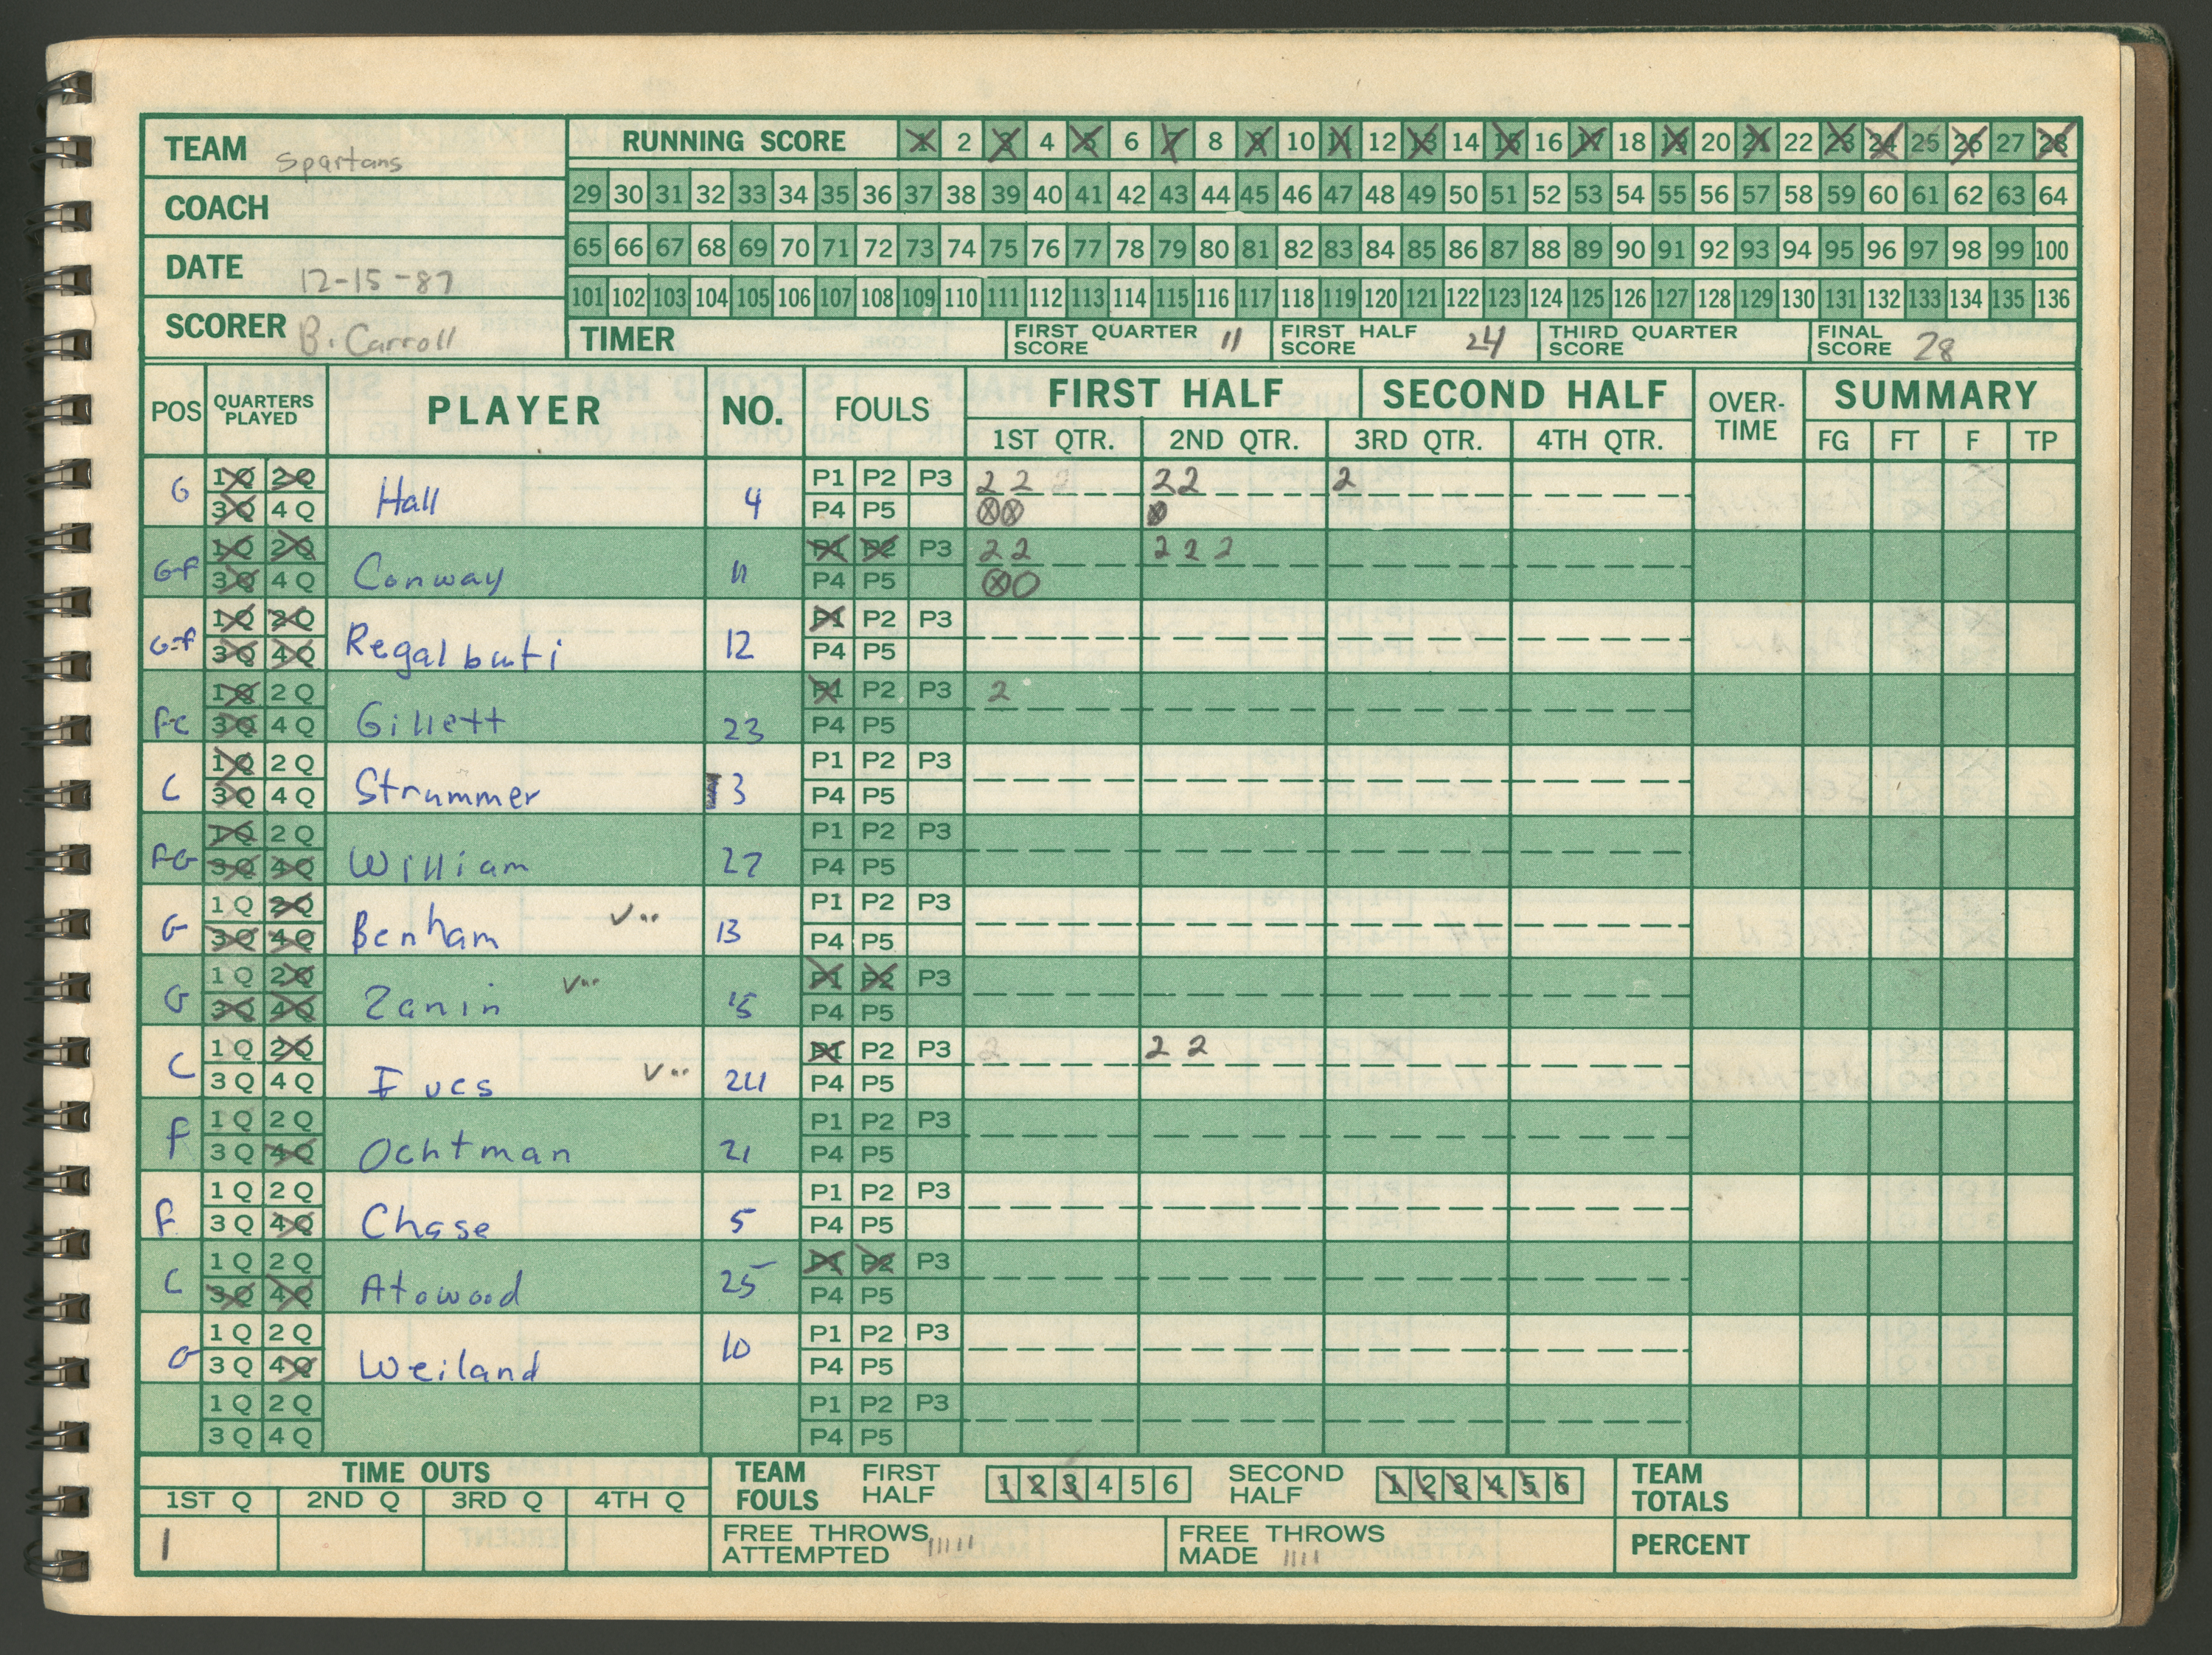 TEAM Spartans
COACH
DATE 12-15-87
SCORER B. Carroll
RUNNING SCORE 1 2 3 4 5 6 7 8 9 10 11 12 13 14 15 16 17 18 19 20 21 22 23 24 25 26 27 28
29 30 31 32 33 34 35 36 37 38 39 40 41 42 43 44 45 46 47 48 49 50 51 52 53 54 55 56 57 58 59 60 61 62 63 64
65 66 67 68 69 70 71 72 73 74 75 76 77 78 79 80 81 82 83 84 85 86 87 88 89 90 91 92 93 94 95 96 97 98 99 100
101 102 103 104 105 106 107 108 109 110 111 112 113 114 115 116 117 118 119 120 121 122 123 124 125 126 127 128 129 130 131 132 133 134 135 136
TIMER FIRST QUARTER SCORE 11 FIRST HALF SCORE 24 THIRD QUARTER SCORE FINAL SCORE 28
POS QUARTERS PLAYED PLAYER NO. FOULS FIRST HALF SECOND HALF OVER-TIME SUMMARY
1ST QTR. 2ND QTR. 3RD QTR. 4TH QTR. FG FT F TP
1Q 2Q P1 P2 P3 2 2 2 2 2 2
G 3Q 4Q Hall 4 P4 P5
1Q 2Q P1 P2 P3 2 2 2 2 2
G-F 3Q 4Q Conway 11 P4 P5
1Q 2Q P1 P2 P3
G-F 3Q 4Q Regalbuti 12 P4 P5
1Q 2Q P1 P2 P3 2
F-C 3Q 4Q Gillett 23 P4 P5
1Q 2Q P1 P2 P3
C 3Q 4Q Strummer 3 P4 P5
1Q 2Q P1 P2 P3
F-G 3Q 4Q William 27 P4 P5
1Q 2Q P1 P2 P3
G 3Q 4Q Benham 13 P4 P5
1Q 2Q P1 P2 P3
G 3Q 4Q Zanin 15 P4 P5
1Q 2Q P1 P2 P3 2 2 2
C 3Q 4Q 24 P4 P5
1Q 2Q P1 P2 P3
F 3Q 4Q Ochtman 21 P4 P5
1Q 2Q P1 P2 P3
F 3Q 4Q Chase 5 P4 P5
1Q 2Q P1 P2 P3
C 3Q 4Q Atowood 25 P4 P5
1Q 2Q P1 P2 P3
G 3Q 4Q Weiland 10 P4 P5
1Q 2Q P1 P2 P3
3Q 4Q P4 P5
TIME OUTS
1ST Q 2ND Q 3RD Q 4TH Q
1
TEAM FOULS FIRST HALF 1 2 3 4 5 6 SECOND HALF 1 2 3 4 5 6
FREE THROWS ATTEMPTED IIIII FREE THROWS MADE IIII
TEAM TOTALS
PERCENT